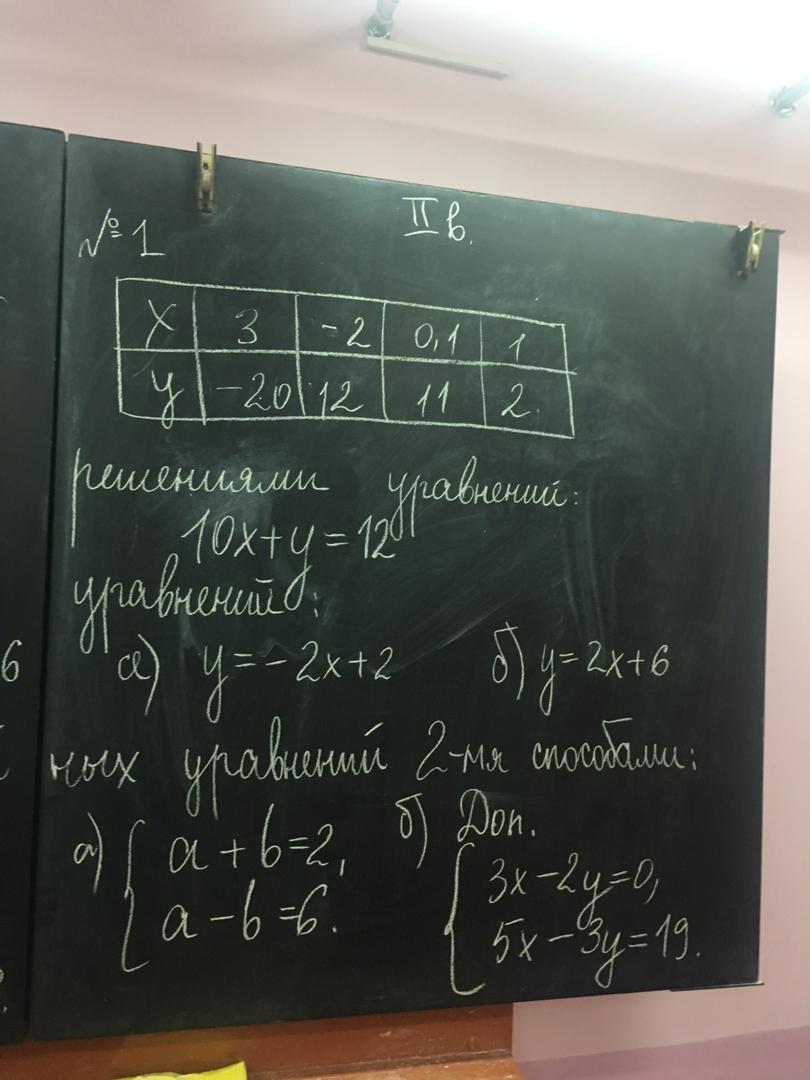 II в.
№1
x 3 -2 0,1 1
y -20 12 11 2
решениями уравнений:
10x+y=12
уравнений:
а) y=-2x+2 б) y=2x+6
6
ных уравнений 2-мя способами:
а) { a+b=2, б) Доп.
a-b=6. { 3x-2y=0,
5x-3y=19.